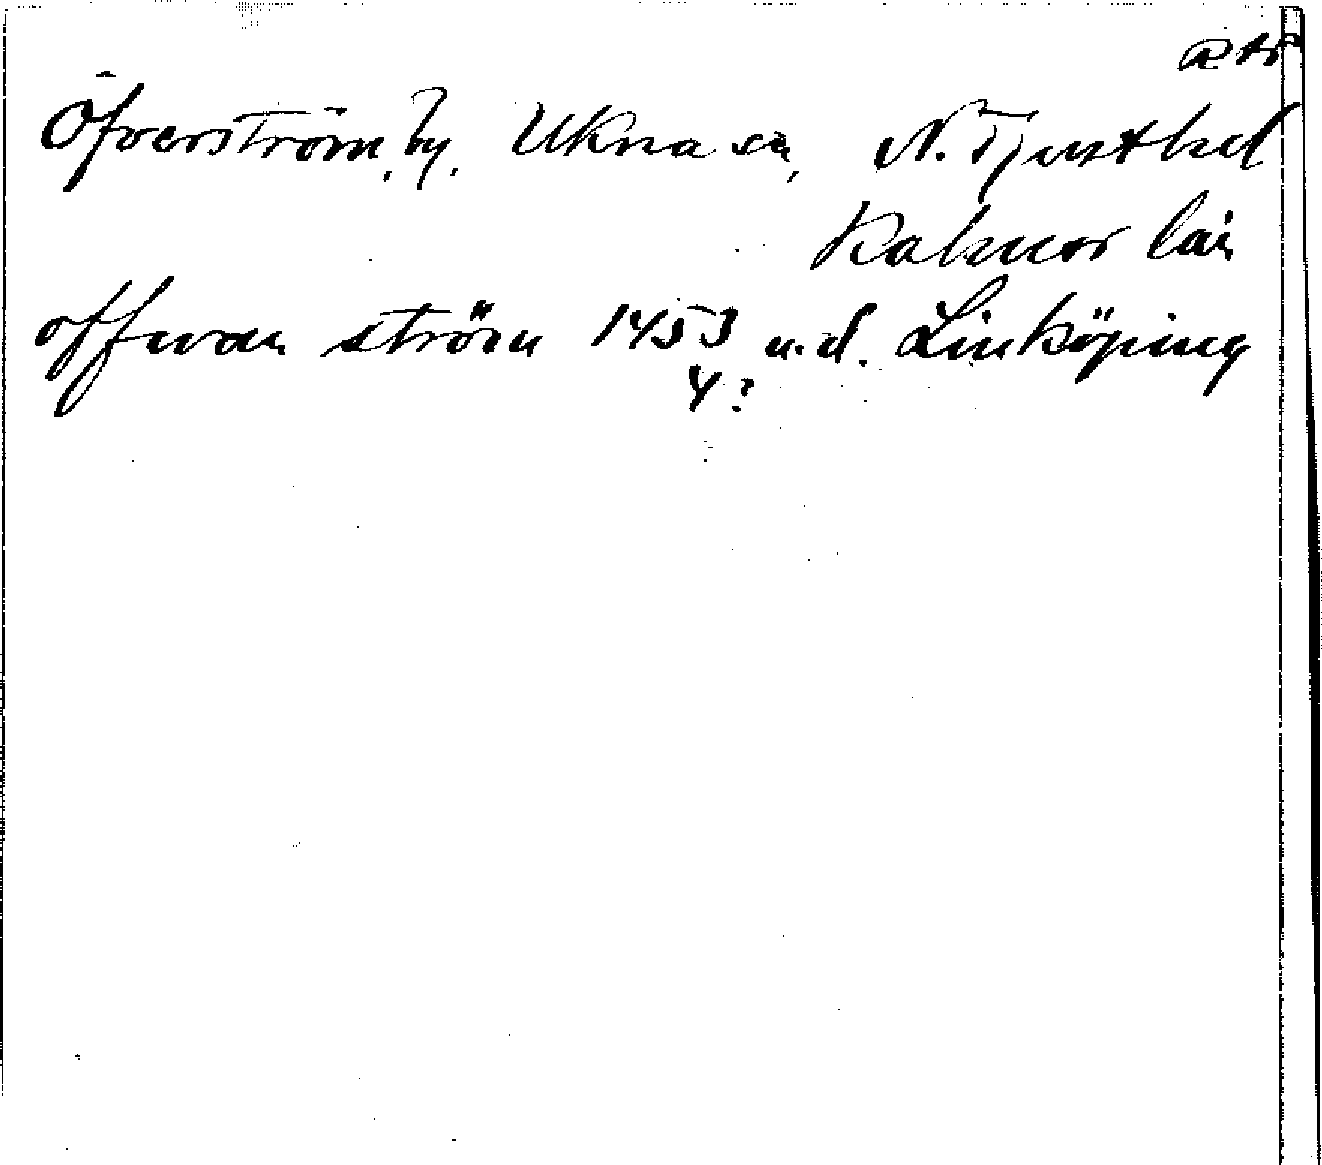 Öfverström, by, Ukna sn, N. Tjust hd
Kalmar län
offwan ström 1453 u.d. Linköping
4?